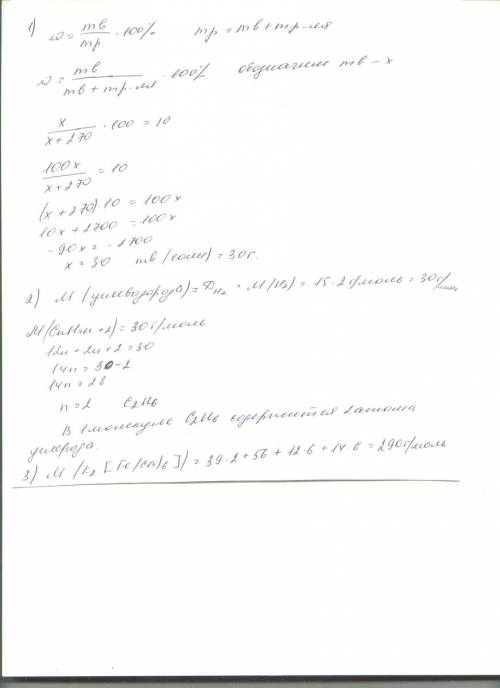 1) ω = mв/mр · 100% mр = mв + mр-ля
ω = mв/(mв + mр-ля) · 100% обозначим mв - x
x/(x+270) · 100 = 10
100x/(x+270) = 10
(x+270) 10 = 100x
10x + 2700 = 100x
-90x = -2700
x = 30 mв (соли) = 30г.
2) M (углеводорода) = DH2 · M(H2) = 15·2г/моль = 30г/моль
M(CnH2n+2) = 30г/моль
12n + 2n + 2 = 30
14n = 30-2
14n = 28
n = 2 C2H6
В 1 молекуле C2H6 содержится 2 атома
углерода.
3) M (K2 [Fe(CN)6]) = 39·2+56+12·6+14·6 = 290г/моль